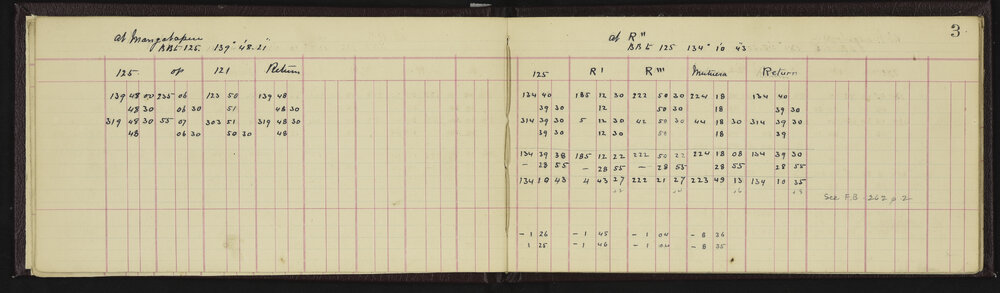 3
at Mangatapere
BBt 125. 139° 48' 21"
125. op 121 Return
139 48 00 235 06 123 50 139 48
48 30 06 30 51 48 30
319 48 30 55 07 303 51 319 48 30
48 06 30 50 30 48
at R"
BB t 125 134° 10 43
125 R' R''' Mutuera Return
134 40 185 12 30 222 50 30 224 18 134 40
39 30 12 50 30 18 39 30
314 39 30 5 12 30 42 50 30 44 18 30 314 39 30
39 30 12 30 50 18 39
134 39 38 185 12 22 222 50 22 224 18 08 134 39 30
- 28 55 - 28 55 - 28 55 28 55 28 55
134 10 43 4 43 27 222 21 27 223 49 13 134 10 35
See F.B. 262 p 2
- 1 26 - 1 45 - 1 04 - 8 36
1 25 - 1 46 - 1 04 - 8 35